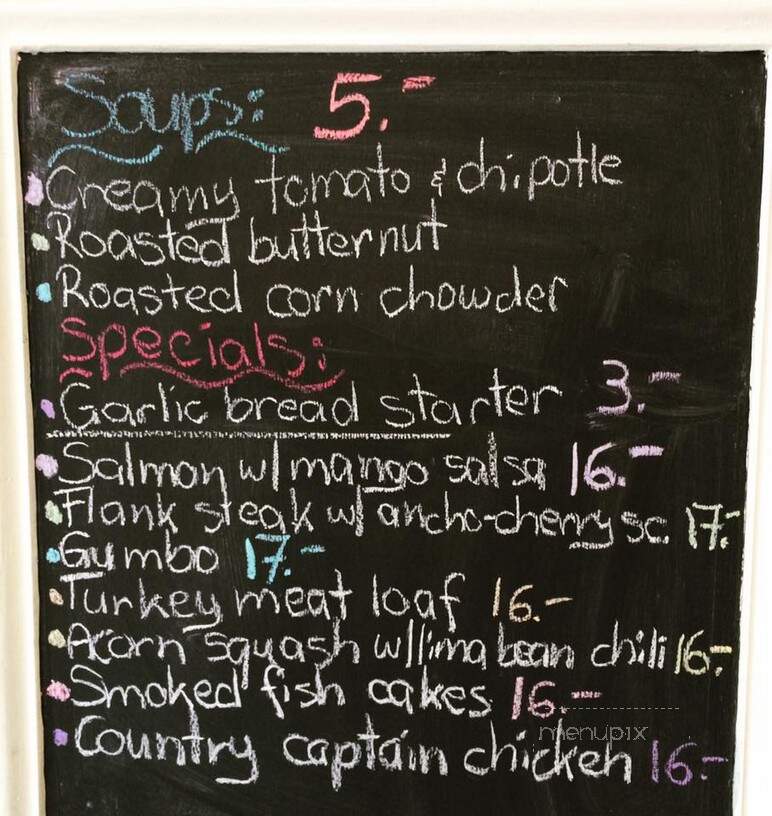 Soups: 5.-
Creamy tomato & chipotle
Roasted butternut
Roasted corn chowder
Specials:
Garlic bread starter 3.-
Salmon w/ mango salsa 16.-
Flank steak w/ ancho-cherry sc. 17.-
Gumbo 17.-
Turkey meat loaf 16.-
Acorn squash w/lima bean chili 16.-
Smoked fish cakes 16.-
menupix
Country captain chicken 16.-